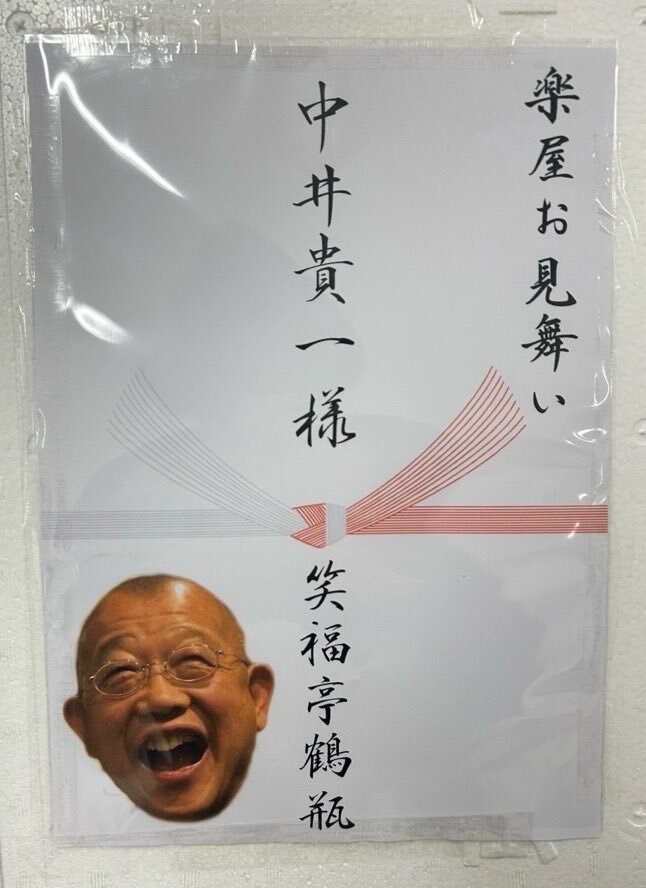 楽屋お見舞い
中井貴一様
笑福亭鶴瓶